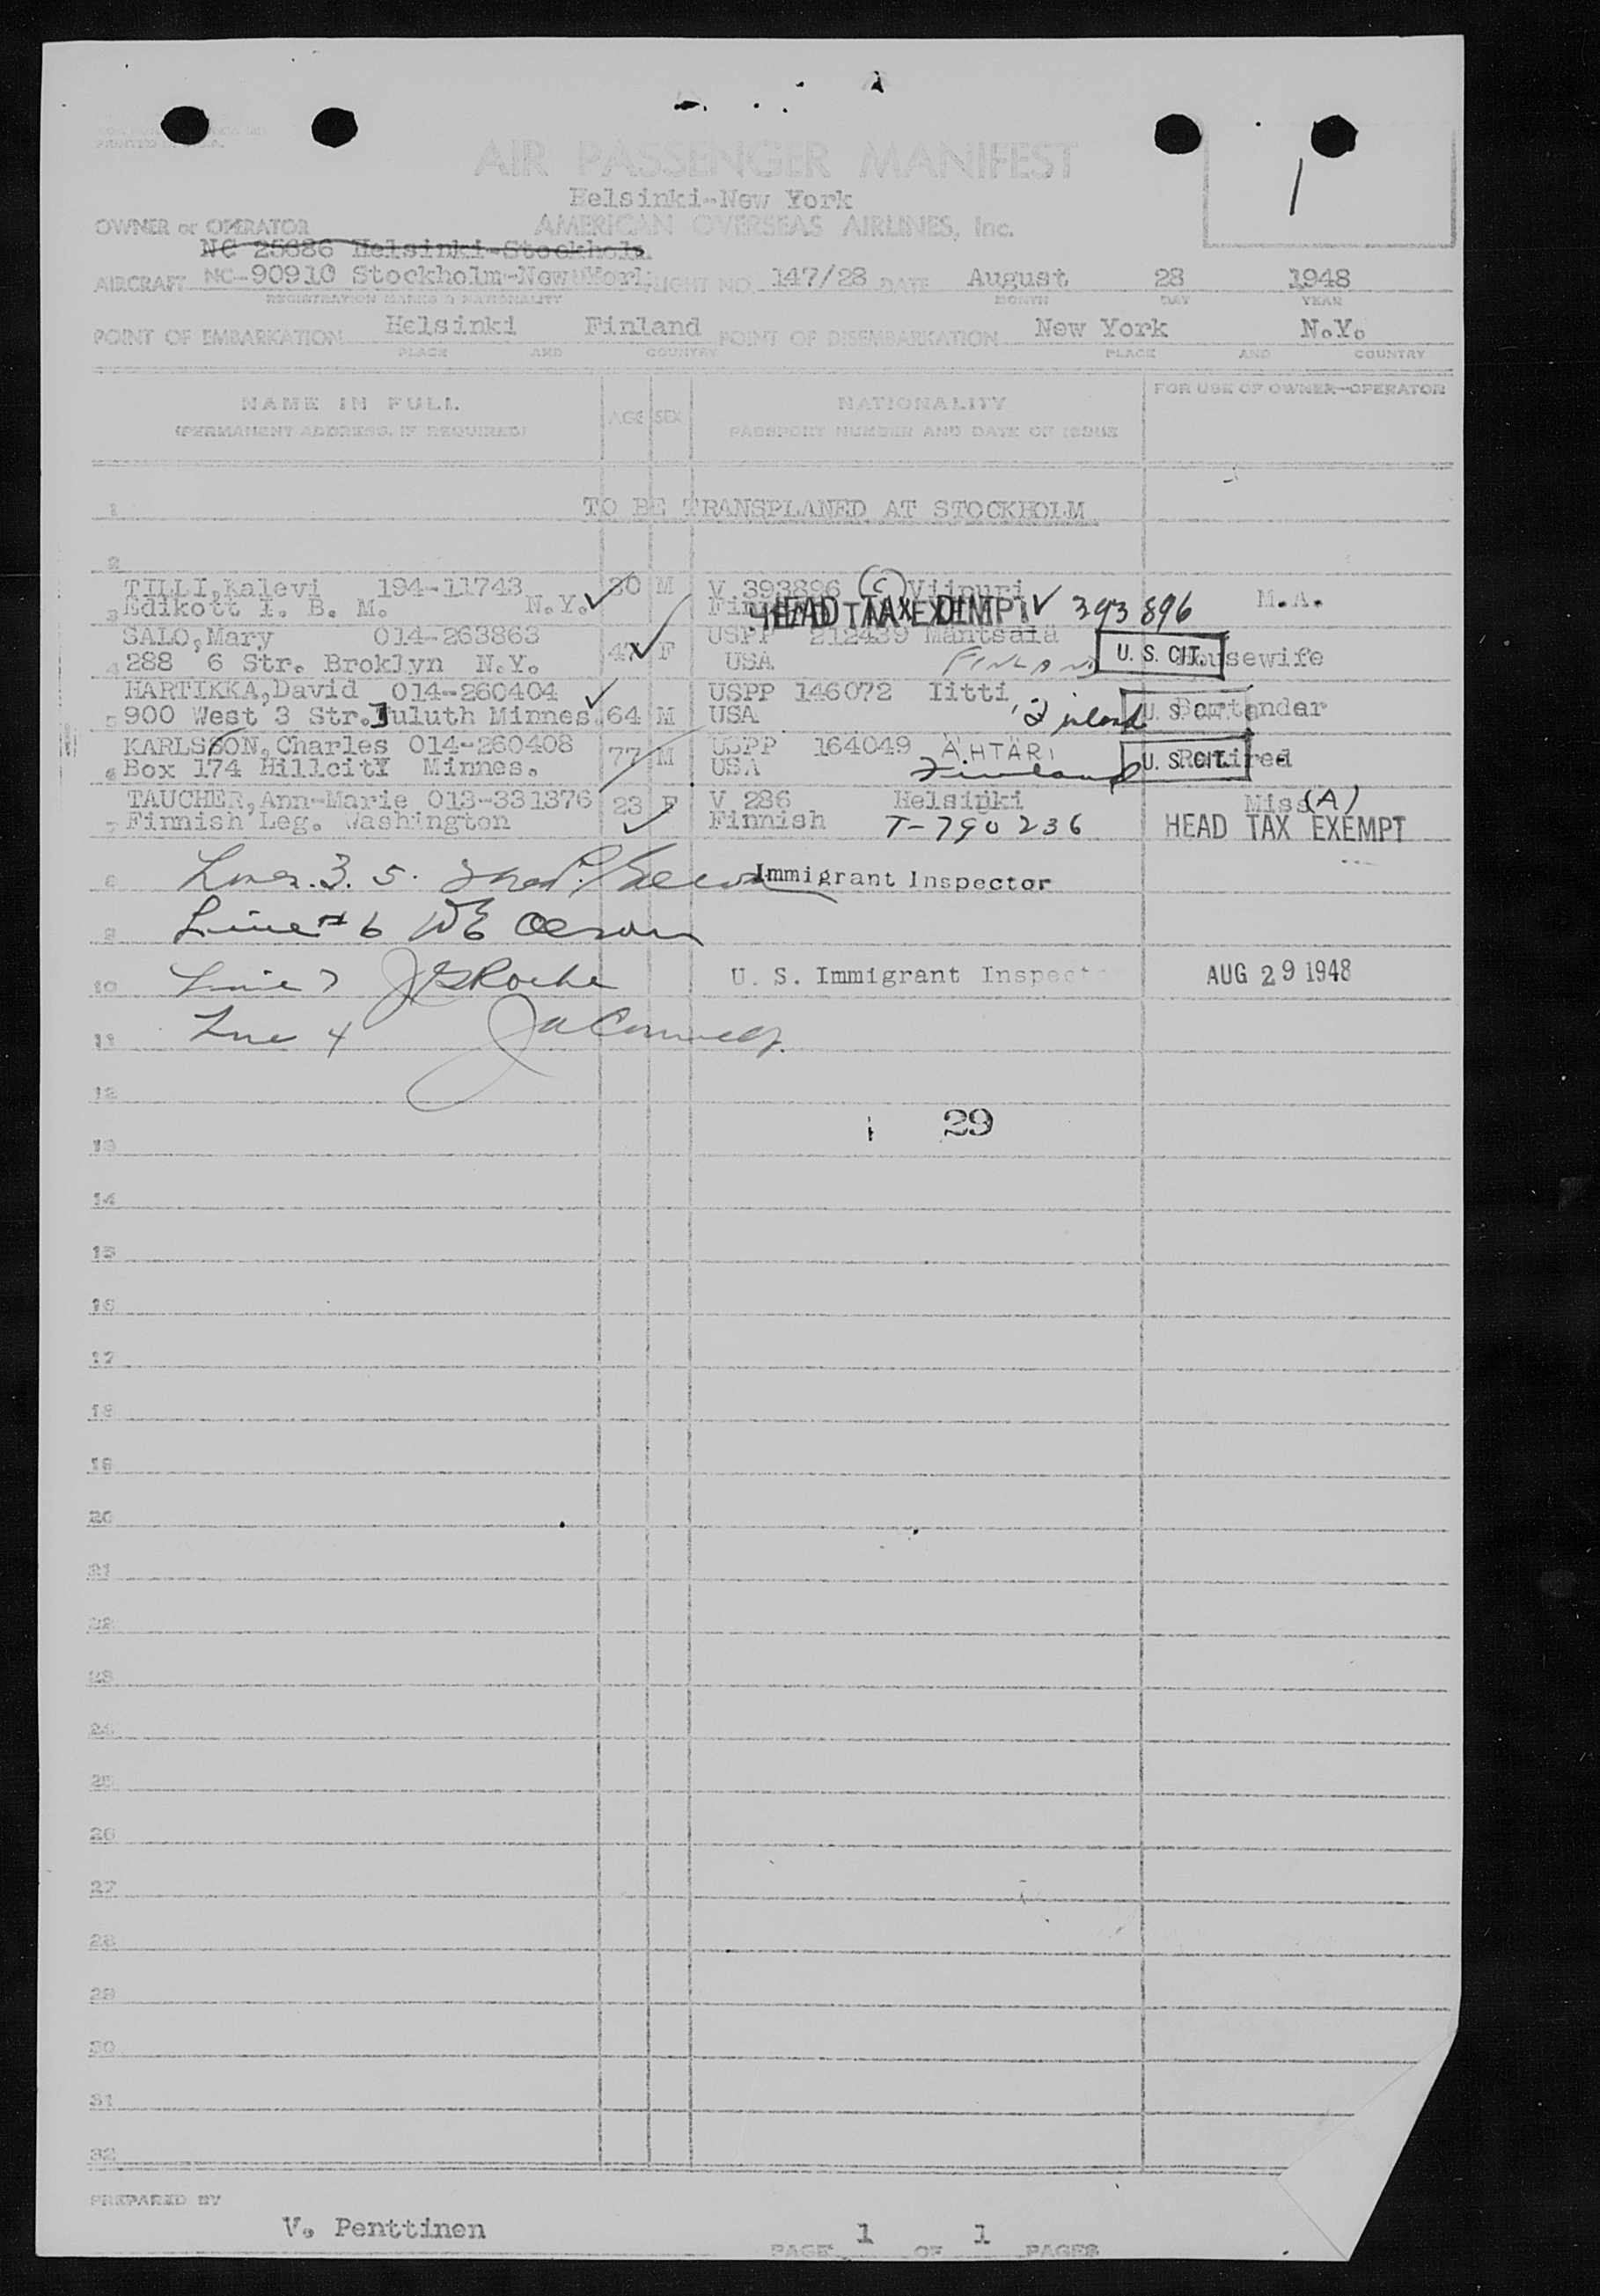 PRINTED
AIR PASSENGER MANIFEST
Helsinki-New York
OWNER or OPERATOR AMERICAN OVERSEAS AIRLINES, Inc.
NC 25686 Helsinki-Stockholm
AIRCRAFT NC-90910 Stockholm-New York FLIGHT NO. 147/28 DATE August 28 1948
REGISTRATION MARKS & NATIONALITY MONTH DAY YEAR
POINT OF EMBARKATION Helsinki Finland POINT OF DISEMBARKATION New York N.Y.
PLACE AND COUNTRY PLACE AND COUNTRY
1
NAME IN FULL AGE SEX NATIONALITY FOR USE OF OWNER-OPERATOR
(PERMANENT ADDRESS, IF REQUIRED) PASSPORT NUMBER AND DATE OF ISSUE
1 TO BE TRANSPLANED AT STOCKHOLM
2
TILLI, Kalevi 194-11743 30 M V 393896 (C) Viipuri M.A.
3 Edikott I. B. M. N.Y. HEAD TAX EXEMPT V 393896
SALO, Mary 014-263863 47 F USPP 212439 Mäntsälä
4 288 6 Str. Broklyn N.Y. USA FINLAND U. S. CIT. Housewife
HARTIKKA, David 014-260404 64 M USPP 146072 Iitti, Finland U. S. CIT. Bartender
5 900 West 3 Str. Duluth Minnes. USA
KARLSSON, Charles 014-260408 77 M USPP 164049 ÄHTÄRI U. S. CIT. Retired
6 Box 174 Hillcity Minnes. USA Finland
TAUCHER, Ann-Marie 013-331376 23 F V 236 Helsinki Miss (A)
7 Finnish Leg. Washington Finnish T-790236 HEAD TAX EXEMPT
8 Lines 3. 5. Immigrant Inspector
9 Line # 6 WE Olson
10 Line 7 JG Roche U. S. Immigrant Inspect AUG 29 1948
11 Line 4
12
29
13
14
15
16
17
18
19
20
21
22
23
24
25
26
27
28
29
30
31
32
PREPARED BY
V. Penttinen
PAGE 1 OF 1 PAGES